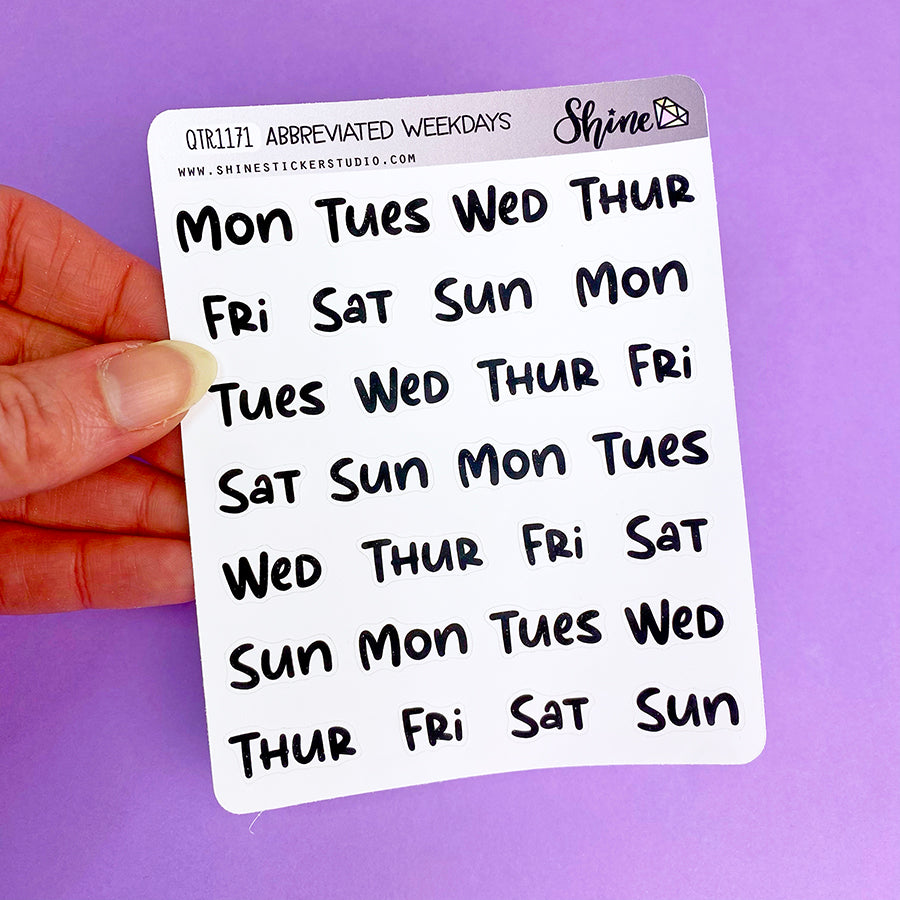 QTR1171 ABBREVIATED WEEKDAYS Shine
WWW.SHINESTICKERSTUDIO.COM
Mon Tues Wed Thur
Fri Sat Sun Mon
Tues Wed Thur Fri
Sat Sun Mon Tues
Wed Thur Fri Sat
Sun Mon Tues Wed
Thur Fri Sat Sun